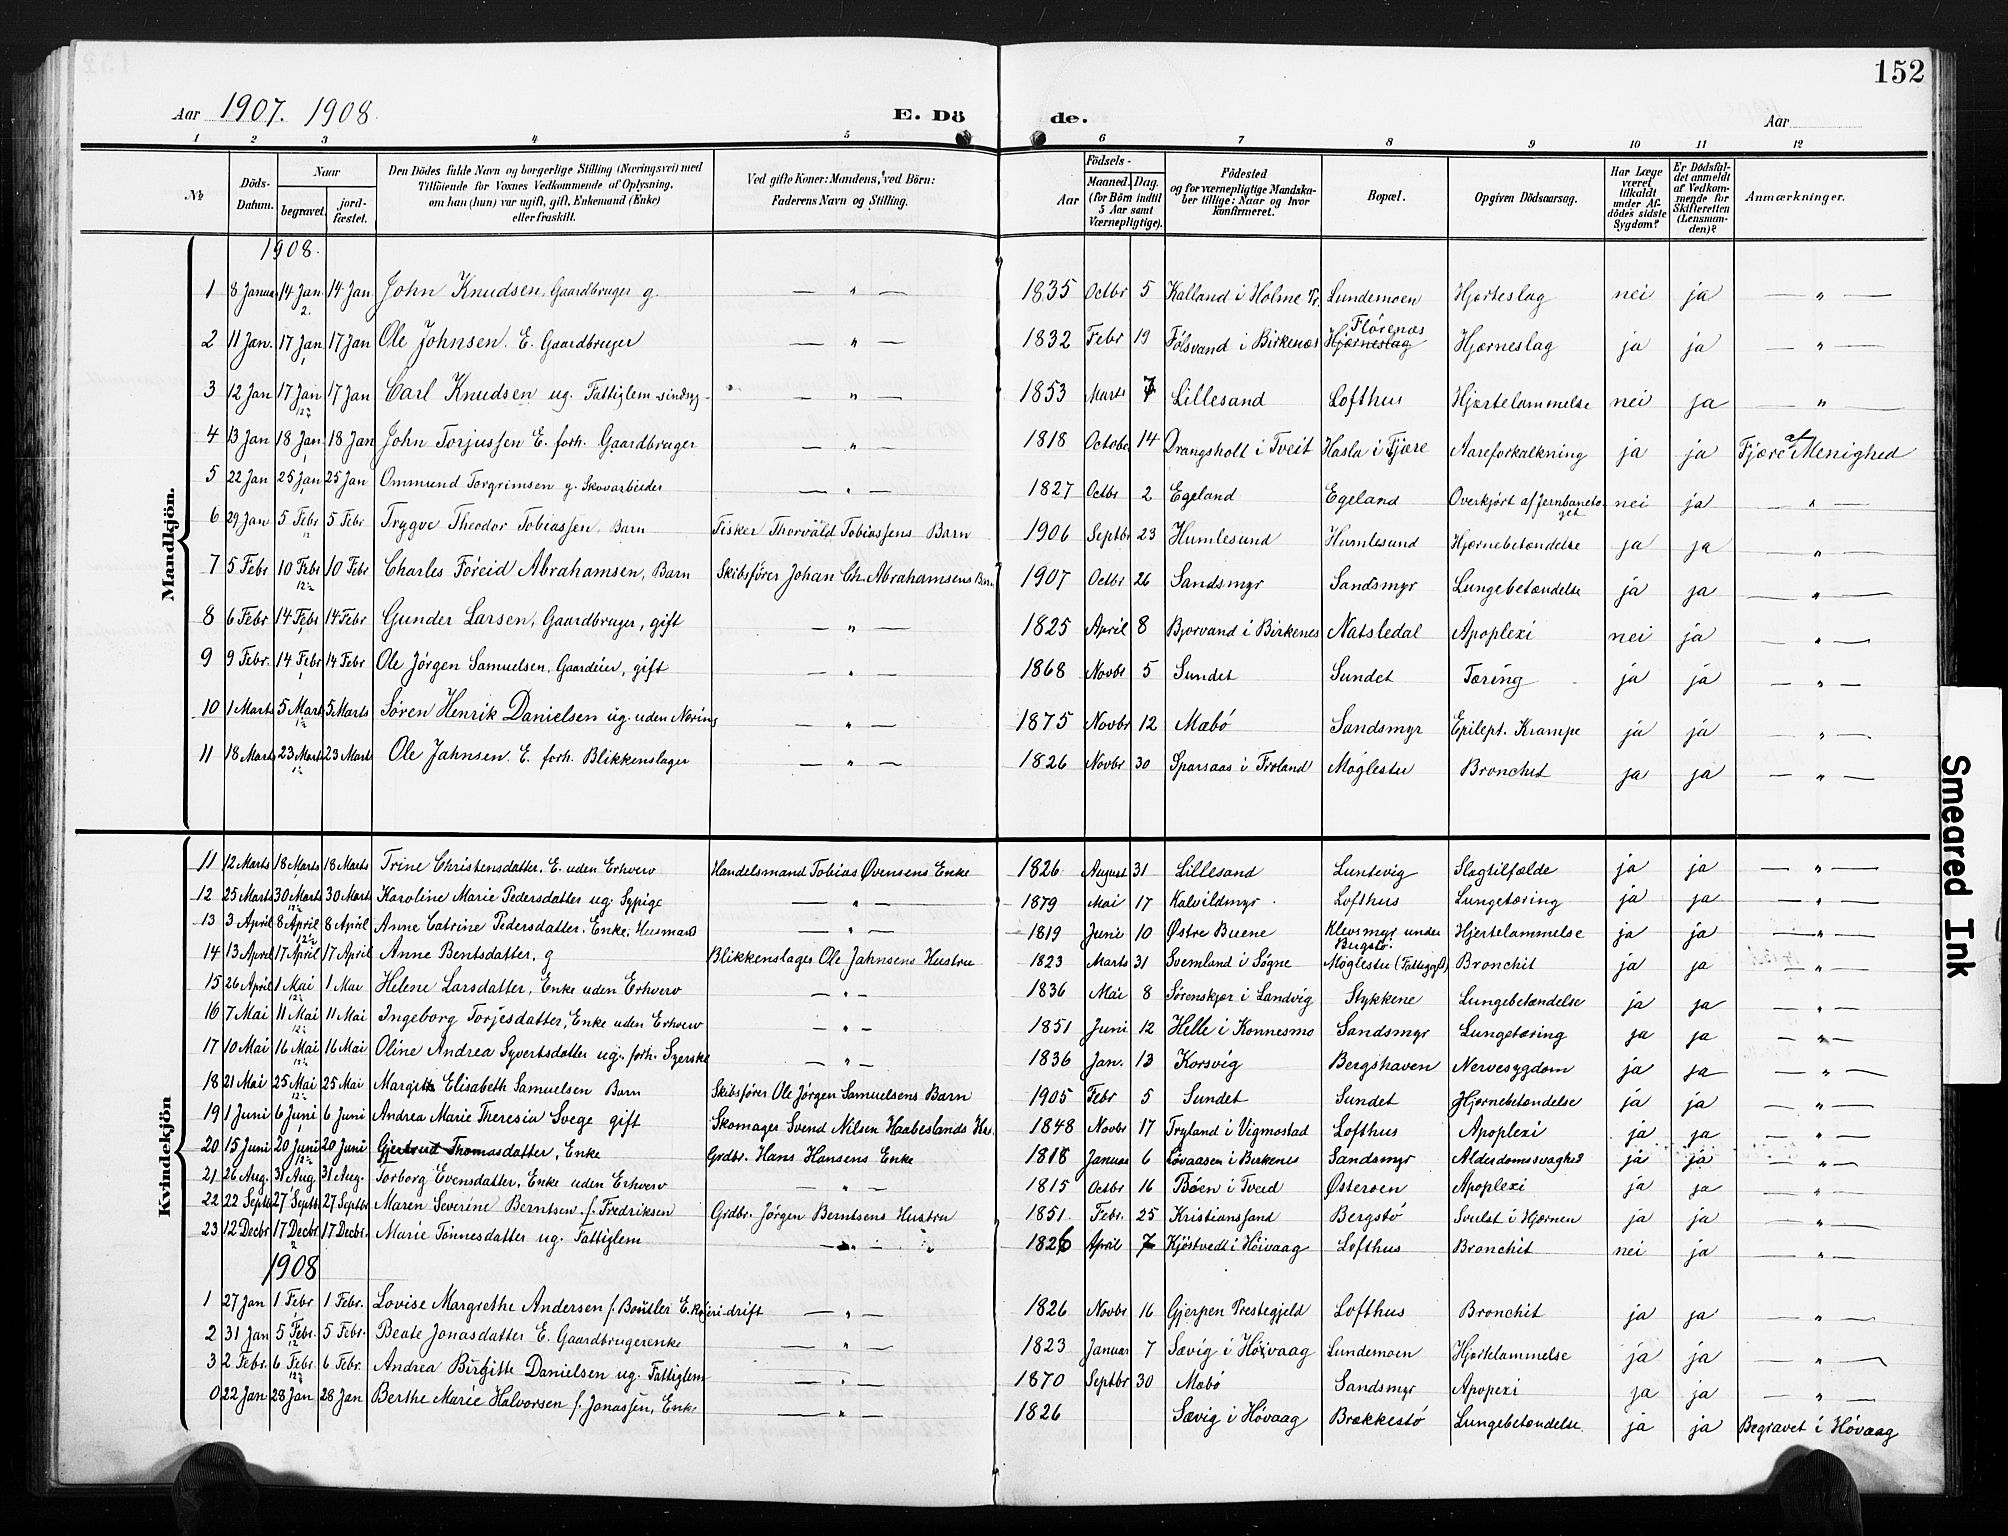 152
Aar 1907. 1908. E. Dö de. Aar
1 2 3 4 5 6 7 8 9 10 11 12
№ Döds-Datum. Naar begravet. jord-fæstet. Den Dödes fulde Navn og borgerlige Stilling (Næringsvei) med Tilföiende for Voxnes Vedkommende af Oplysning, om han (hun) var ugift, gift, Enkemand (Enke) eller fraskilt. Ved gifte Koner: Mandens, ved Börn: Faderens Navn og Stilling. Födsels- Aar Maaned. Dag. (for Börn indtil 5 Aar samt Værnepligtige). Födested og for værnepligtige Mandskaber tillige: Naar og hvor konfirmeret. Bopæl. Opgiven Dödsaarsag. Har Læge været tilkaldt under Afdödes sidste Sygdom? Er Dödsfaldet anmeldt af Vedkommende for Skifteretten (Lensmanden)? Anmærkninger.
Mandkjön.
1908.
1 8 Januar 14 Jan 2 14 Jan John Knudsen, Gaardbruger g. — " — 1835 Octbr 5 Kalland i Holme Pr. Lundemoen Hjerteslag nei ja — " —
2 11 Jan. 17 Jan 1 17 Jan Ole Johnsen. E. Gaardbruger — " — 1832 Febr 19 Fölsvand i Birkenæs Hjærneslag Flörenæs Hjærneslag ja ja — " —
3 12 Jan 17 Jan 12½ 17 Jan Carl Knudsen ug. Fattiglem sindsyg — " — 1853 Marts 7 Lillesand Lofthus Hjertelammelse nei ja — " —
4 13 Jan 18 Jan 1 18 Jan John Torjussen E. forh. Gaardbruger — " — 1818 October 14 Drangsholt i Tveit Hasla i Fjære Aareforkalkning ja ja Fjære af Menighed
5 22 Jan 25 Jan 1 25 Jan Ommund Torgrimsen g. Skovarbeider — " — 1827 Octbr 2 Egeland Egeland Overkjört af Jernbanetoget nei ja — " —
6 29 Jan 5 Febr 12 5 Febr Trygve Theodor Tobiassen. Barn Fisker Thorvald Tobiassens Barn 1906 Septbr 23 Humlesund Humlesund Hjernebetændelse ja ja — " —
7 5 Febr 10 Febr 12½ 10 Febr Charles Föreid Abrahamsen, Barn Skibsförer Johan Ch. Abrahamsens Barn 1907 Octbr 26 Sandsmyr Sandsmyr Lungebetændelse ja ja — " —
8 6 Febr 14 Febr 1 14 Febr Gunder Larsen, Gaardbruger, gift — " — 1825 April 8 Bjorvand i Birkenes Natsledal Apoplexi nei ja — " —
9 9 Febr. 14 Febr 1 14 Febr Ole Jörgen Samuelsen, Gaardeier, gift — " — 1868 Novbr 5 Sundet Sundet Tæring ja ja — " —
10 1 Marts 5 Mart 1½ 5 Marts Sören Henrik Danielsen ug. uden Næring — " — 1875 Novbr 12 Mæbö Sandsmyr Epilept. Krampe ja ja — " —
11 18 Marts 23 Mart 1½ 23 Mart Ole Jahnsen. E. forh. Blikkenslager — " — 1826 Novbr 30 Sparsaas i Froland Möglestu Bronchit ja ja — " —
Kvindekjön
11 12 Marts 18 Marts 18 Marts Trine Christensdatter. E. uden Erhverv Handelsmand Tobias Övensens Enke 1826 August 31 Lillesand Luntevig Slagtilfælde ja ja — " —
12 25 Marts 30 Marts 12½ 30 Marts Karoline Marie Pedersdatter ug. Sypige — " — 1879 Mai 17 Kalvildmyr Lofthus Lungetæring ja ja — " —
13 3 April 8 April 12½ 8 April Anne Catrine Pedersdatter. Enke. Husmand — " — 1819 Juni 10 Østre Buene Klevsmyr under Bergstö. Hjertelammelse ja ja — " —
14 13 April 17 April 17 April Anne Bentsdatter, g Blikkenslager Ole Jahnsens Hustru 1823 Marts 31 Svemland i Søgne Möglestu (Fattiggd) Bronchit ja ja — " —
15 26 April 1 Mai 12½ 1 Mai Helene Larsdatter, Enke uden Erhverv — " — 1836 Mai 8 Sörenskjær i Landvig Stykkene Lungebetændelse ja ja — " —
16 7 Mai 11 Mai 12½ 11 Mai Ingeborg Torjesdatter, Enke uden Erhverv — " — 1851 Juni 12 Helle i Konnesmo Sandsmyr Lungetæring ja ja — " —
17 10 Mai 16 Mai 12½ 16 Mai Oline Andrea Syvertsdatter ug. forh. Syerske — " — 1836 Jan. 13 Korsvig Bergshaven Nervesygdom ja ja — " —
18 21 Mai 25 Mai 12½ 25 Mai Margith Elisabeth Samuelsen Barn Skibsförer Ole Jörgen Samuelsens Barn 1905 Febr 5 Sundet Sundet Hjærnebetændelse ja ja — " —
19 1 Juni 6 Juni 1 6 Juni Andrea Marie Theresia Svege gift Skomager Svend Nilsen Haabeslands Hu. 1848 Novbr 17 Tryland i Vigmostad Lofthus Apoplexi ja ja — " —
20 15 Juni 20 Juni 12½ 20 Juni Gjertrud Thomasdatter, Enke Grdbr. Hans Hansens Enke 1818 Januar 6 Lövaasen i Birkenes Sandsmyr Alderdomssvaghed ja ja — " —
21 26 Aug. 31 Aug 31 Aug. Torborg Evensdatter, Enke uden Erhverv — " — 1815 Octbr 16 Böen i Tveid Østerøen Apoplexi ja ja — " —
22 22 Septb 27 Septb. 27 Septbr Maren Severine Berntsen f. Fredriksen Grdbr. Jörgen Berntsens Hustru 1851 Febr. 25 Kristianssand Bergstö Svulst i Hjernen ja ja — " —
23 12 Decbr 17 Decbr 2 17 Decbr. Marie Tönnesdatter ug. Fattiglem — " — 1826 April 7 Kjöstvedt i Höivaag Lofthus Bronchit nei ja — " —
1908
1 27 Jan 1 Febr 1 1 Febr. Lovise Margrethe Andersen f. Boutler E. Meieri-drift — " — 1826 Novbr 16 Gjerpen Prestegjeld Lofthus Bronchit ja ja — " —
2 31 Jan 5 Febr. 12 5 Febr. Beate Jonasdatter E. Gaardbrugerenke — " — 1823 Januar 7 Sævig i Höivaag Lundemoen Hjertelammelse ja ja — " —
3 2 Febr. 6 Febr 12½ 6 Febr. Andrea Birgitte Danielsen ug. Fattiglem — " — 1870 Septbr 30 Mæbö Sandsmyr Apopexi ja ja — " —
0 22 Jan 28 Jan 28 Jan Berthe Marie Halvorsen f. Jonassen, Enke — " — 1826 Sævig i Hövaag Brækkestö Lungebetændelse ja ja Begravet i Hövaag
Smeared Ink